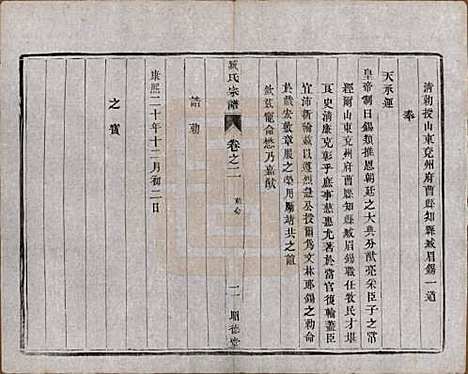 清勅授山東兗州府曹縣知縣臧眉錫一道
奉
天承運
皇帝制曰錫類推恩朝廷之大典分猷亮采臣子之常
經爾山東兗州府曹縣知縣臧眉錫職任牧民才堪
百里清廉克彰乎庶事慈惠尤著於當官復輪蓋臣
宜沛新綸茲以遵烈盡公授爾爲文林郎錫之勅命
於戲宏敷章服之榮用勵靖共之誼
欽茲寵命懋乃嘉猷
臧氏宗譜
卷之二
勅命
二
眉德堂
誥勅
康熙二十年十二月初二日
之寶